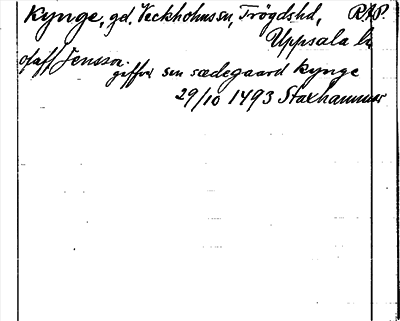 Kynge, gd. Veckholms sn, Trögds hd, RAP.
Uppsala län
Olaff Jensson
geffwi sin sædegaard Kynge
29/10 1493 Staxhammer